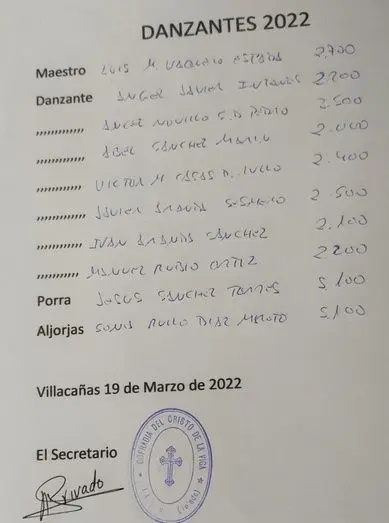 DANZANTES 2022
Maestro LUIS M. VAQUERO ESPADA 2.700
Danzante ANGEL JAVIER 2.200
,,,,,,,,,,, ANGEL NOVILLO 2.500
,,,,,,,,,,, ABEL SANCHEZ MARIN 2.000
,,,,,,,,,,, VICTOR M CASAS 2.400
,,,,,,,,,,, JAVIER ARANDA 2.500
,,,,,,,,,,, IVAN ARANDA SANCHEZ 2.100
,,,,,,,,,,, MANUEL RUBIO ORTIZ 2200
Porra JESUS SANCHEZ TORRES 5.100
Aljorjas SONIA DIAZ 5.100
Villacañas 19 de Marzo de 2022
El Secretario
Privado
COFRADIA DEL CRISTO DE LA VIGA